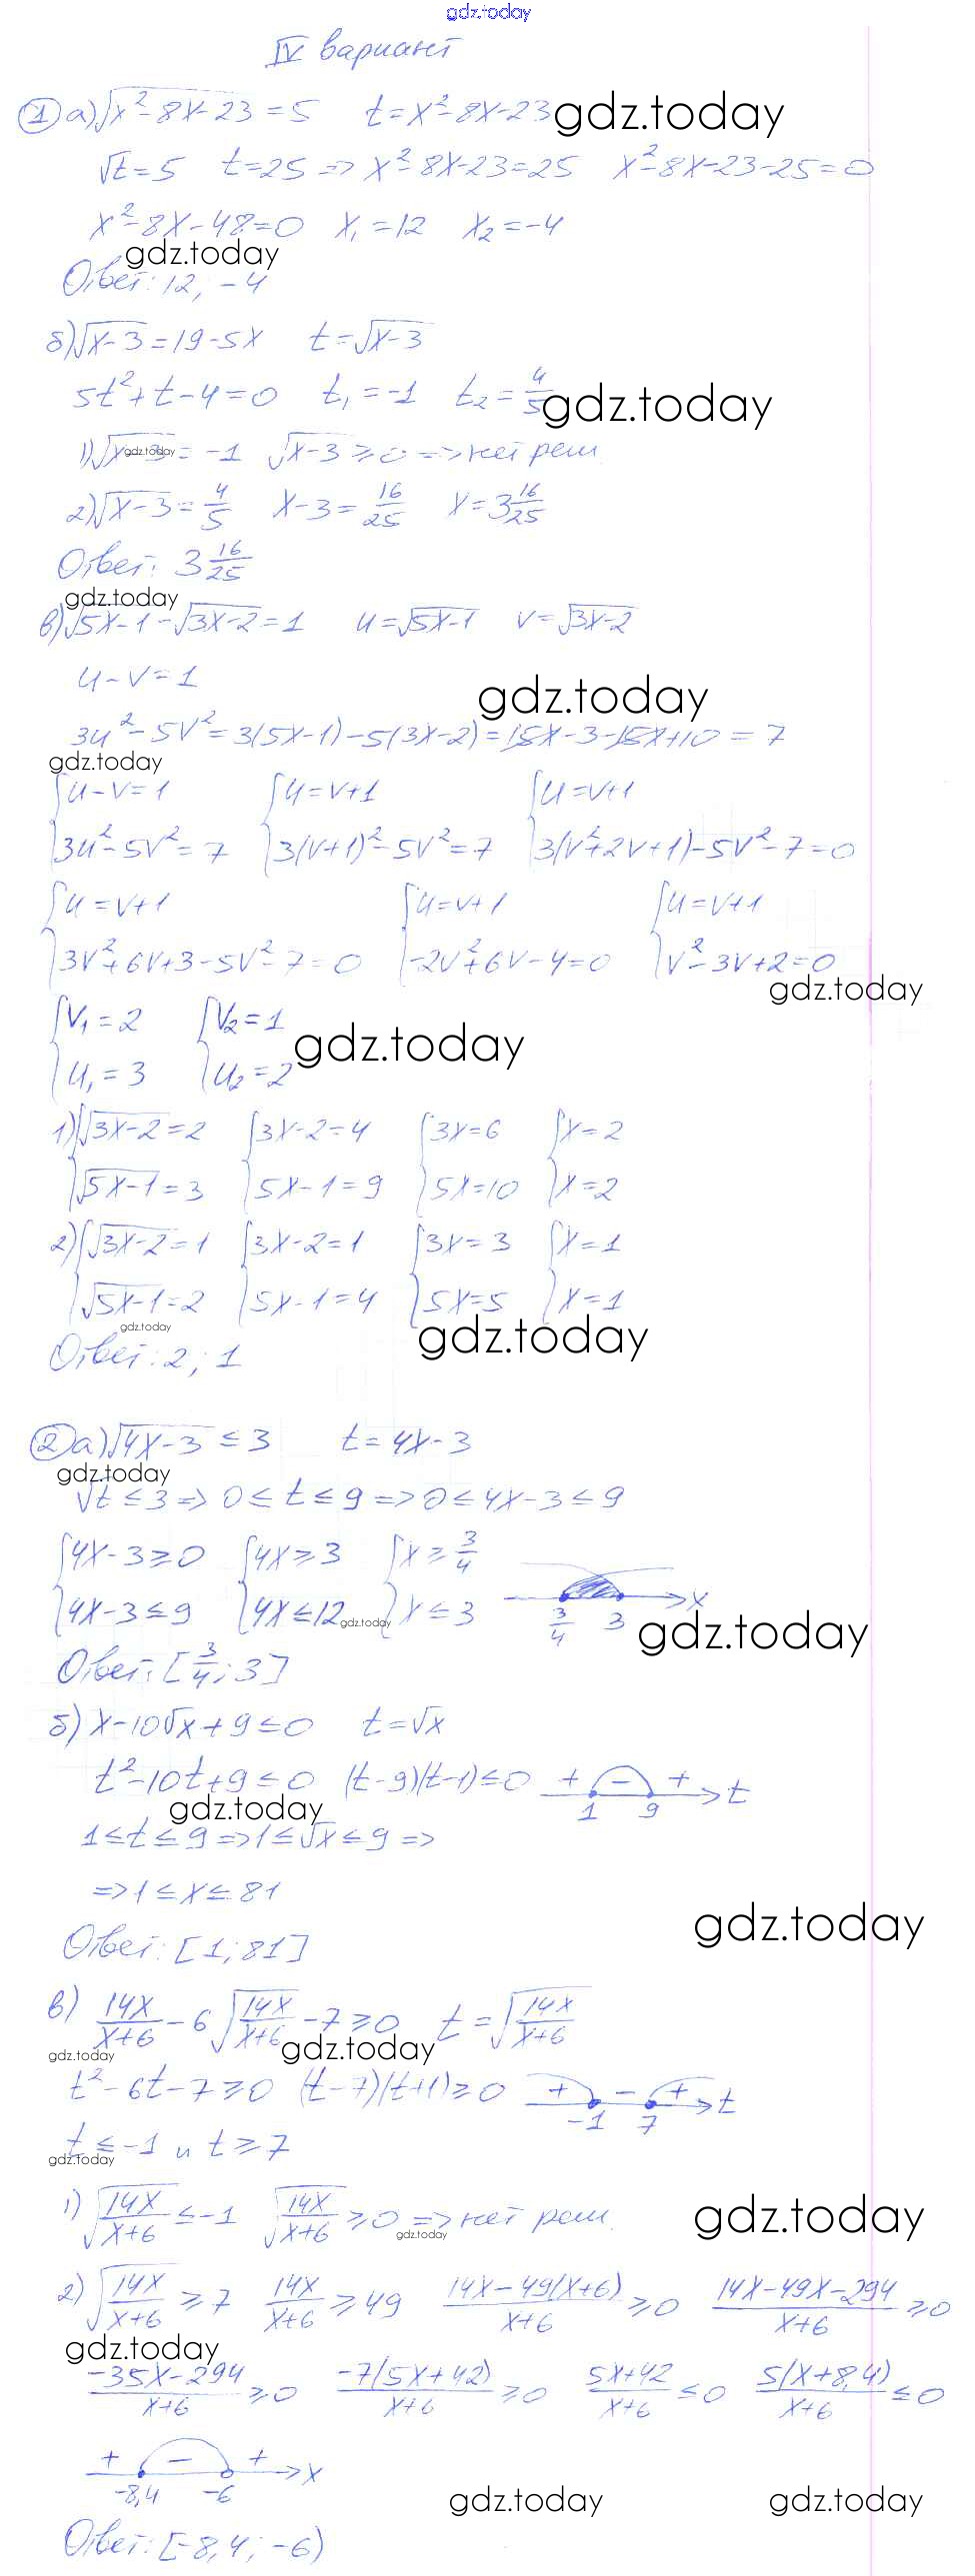 gdz.today
IV вариант
1 а) √(x²-8x-23) = 5   t = x²-8x-23 gdz.today
√t = 5   t = 25 => x²-8x-23 = 25   x²-8x-23-25 = 0
x²-8x-48 = 0   x₁ = 12   x₂ = -4
gdz.today
Ответ: 12; -4
б) √(x-3) = 19-5x   t = √(x-3)
5t²+t-4 = 0   t₁ = -1   t₂ = 4/5 gdz.today
1) √(x-3) = -1   √(x-3) ≥ 0 => нет реш.
gdz.today
2) √(x-3) = 4/5   x-3 = 16/25   x = 3 16/25
Ответ: 3 16/25
gdz.today
в) √(5x-1) - √(3x-2) = 1   u = √(5x-1)   v = √(3x-2)
u-v = 1
gdz.today
3u²-5v² = 3(5x-1)-5(3x-2) = 15x-3-15x+10 = 7
gdz.today
{u-v=1   {u=v+1   {u=v+1
{3u²-5v²=7   {3(v+1)²-5v²=7   {3(v²+2v+1)-5v²-7=0
{u=v+1   {u=v+1   {u=v+1
{3v²+6v+3-5v²-7=0   {-2v²+6v-4=0   {v²-3v+2=0
gdz.today
{v₁=2   {v₂=1
gdz.today
{u₁=3   {u₂=2
1) {√(3x-2)=2   {3x-2=4   {3x=6   {x=2
{√(5x-1)=3   {5x-1=9   {5x=10   {x=2
2) {√(3x-2)=1   {3x-2=1   {3x=3   {x=1
{√(5x-1)=2   {5x-1=4   {5x=5   {x=1
gdz.today
gdz.today
Ответ: 2; 1
2 а) √(4x-3) ≤ 3   t = 4x-3
gdz.today
√t ≤ 3 => 0 ≤ t ≤ 9 => 0 ≤ 4x-3 ≤ 9
{4x-3≥0   {4x≥3   {x≥3/4
{4x-3≤9   {4x≤12   {x≤3   x
gdz.today
3/4   3 gdz.today
Ответ: [3/4; 3]
б) x-10√x+9 ≤ 0   t = √x
t²-10t+9 ≤ 0   (t-9)(t-1) ≤ 0   + - + t
1   9
gdz.today
1 ≤ t ≤ 9 => 1 ≤ √x ≤ 9 =>
=> 1 ≤ x ≤ 81
gdz.today
Ответ: [1; 81]
в) 14x/(x+6) - 6√(14x/(x+6)) - 7 ≥ 0   t = √(14x/(x+6))
gdz.today
gdz.today
t²-6t-7 ≥ 0   (t-7)(t+1) ≥ 0   + - + t
-1   7
t ≤ -1 и t ≥ 7
gdz.today
1) √(14x/(x+6)) ≤ -1   √(14x/(x+6)) ≥ 0 => нет реш.
gdz.today
gdz.today
2) √(14x/(x+6)) ≥ 7   14x/(x+6) ≥ 49   (14x-49(x+6))/(x+6) ≥ 0   (14x-49x-294)/(x+6) ≥ 0
gdz.today
(-35x-294)/(x+6) ≥ 0   -7(5x+42)/(x+6) ≥ 0   (5x+42)/(x+6) ≤ 0   5(x+8,4)/(x+6) ≤ 0
+ - + x
-8,4   -6
gdz.today   gdz.today
Ответ: [-8,4; -6)